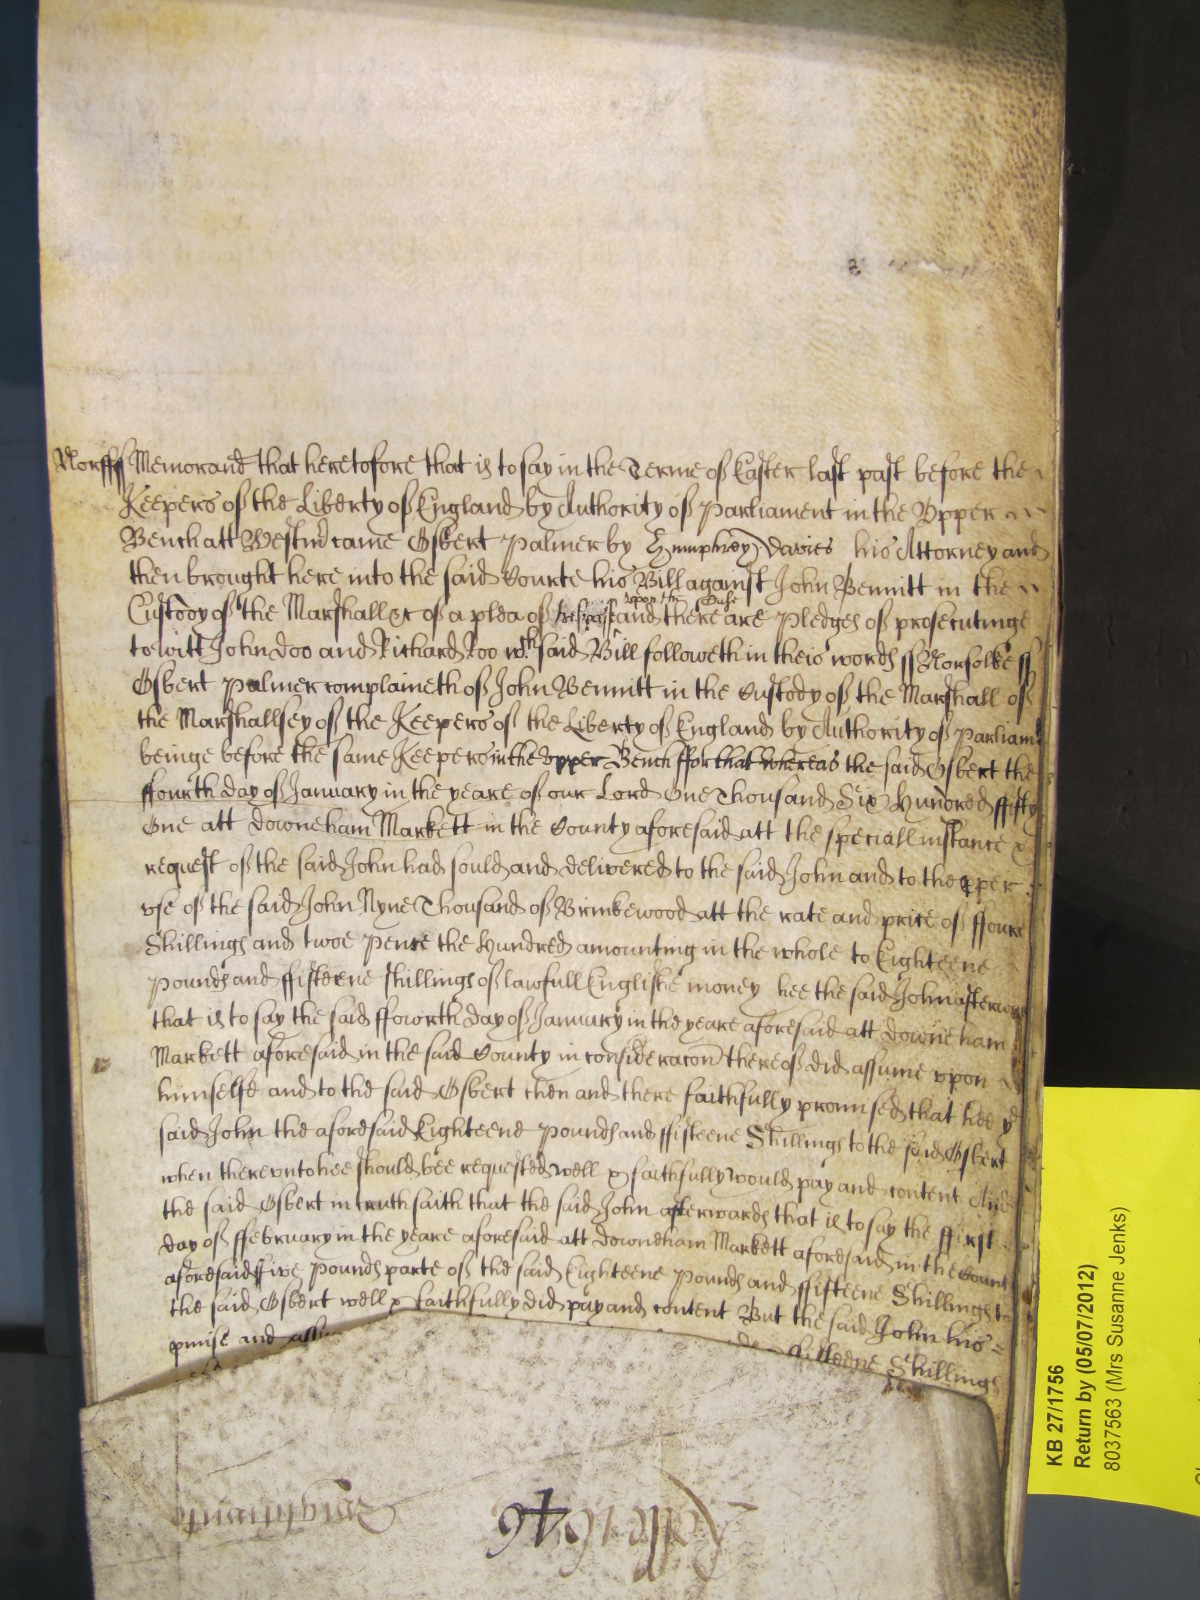 Norff ss Memorand that heretofore that is to say in the Terme of Easter last past before the
Keepers of the Liberty of England by Authority of Parliament in the Vpper
Bench att Westm̃ came Osbert Palmer by Humphrey Davies his Attorney and
then brought here into the said Courte his Bill against John Bennitt in the
upon the Case
Custody of the Marshall &c of a plea of trespasse and there are Pledges of prosecutinge
to witt John Doo and Richard Roo wch said Bill followeth in theis words ss Norfolke ss
Osbert Palmer complaineth of John Bennitt in the Custody of the Marshall of
the Marshallsey of the Keepers of the Liberty of England by Authority of Parliam
beinge before the same Keepers in the Vpper Bench ffor that whereas the said Osbert the
ffourth day of January in the yeare of our Lord One Thousand Six Hundred ffifty
One att Downeham Markett in the County aforesaid att the speciall instance &
request of the said John had sould and delivered to the said John and to the pper
vse of the said John Nyne Thousand of Brinkewood att the rate and price of ffoure
Shillings and twoe pence the Hundred amounting in the whole to Eighteene
pounds and ffifteene shillings of lawfull Englishe money hee the said John afterwards
that is to say the said ffowrth day of January in the yeare aforesaid att Downeham
Markett aforesaid in the said County in consideracon thereof did assume vpon
himselfe and to the said Osbert then and there faithfully promised that hee ye
said John the aforesaid Eighteene pounds and ffifteene Shillings to the said Osbert
when therevnto hee should bee requested well & faithfully would pay and content And
the said Osbert in truth saith that the said John afterwards that is to say the ffirst
day of ffebruary in the yeare aforesaid att Downeham Markett aforesaid in the Count
aforesaid ffive pounds parte of the said Eighteene pounds and ffifteene Shillings to
the said Osbert well & faithfully did pay and content But the said John his
pmise and assu
ffifteene Shillings
KB 27/1756
Return by (05/07/2012)
8037563 (Mrs Susanne Jenks)